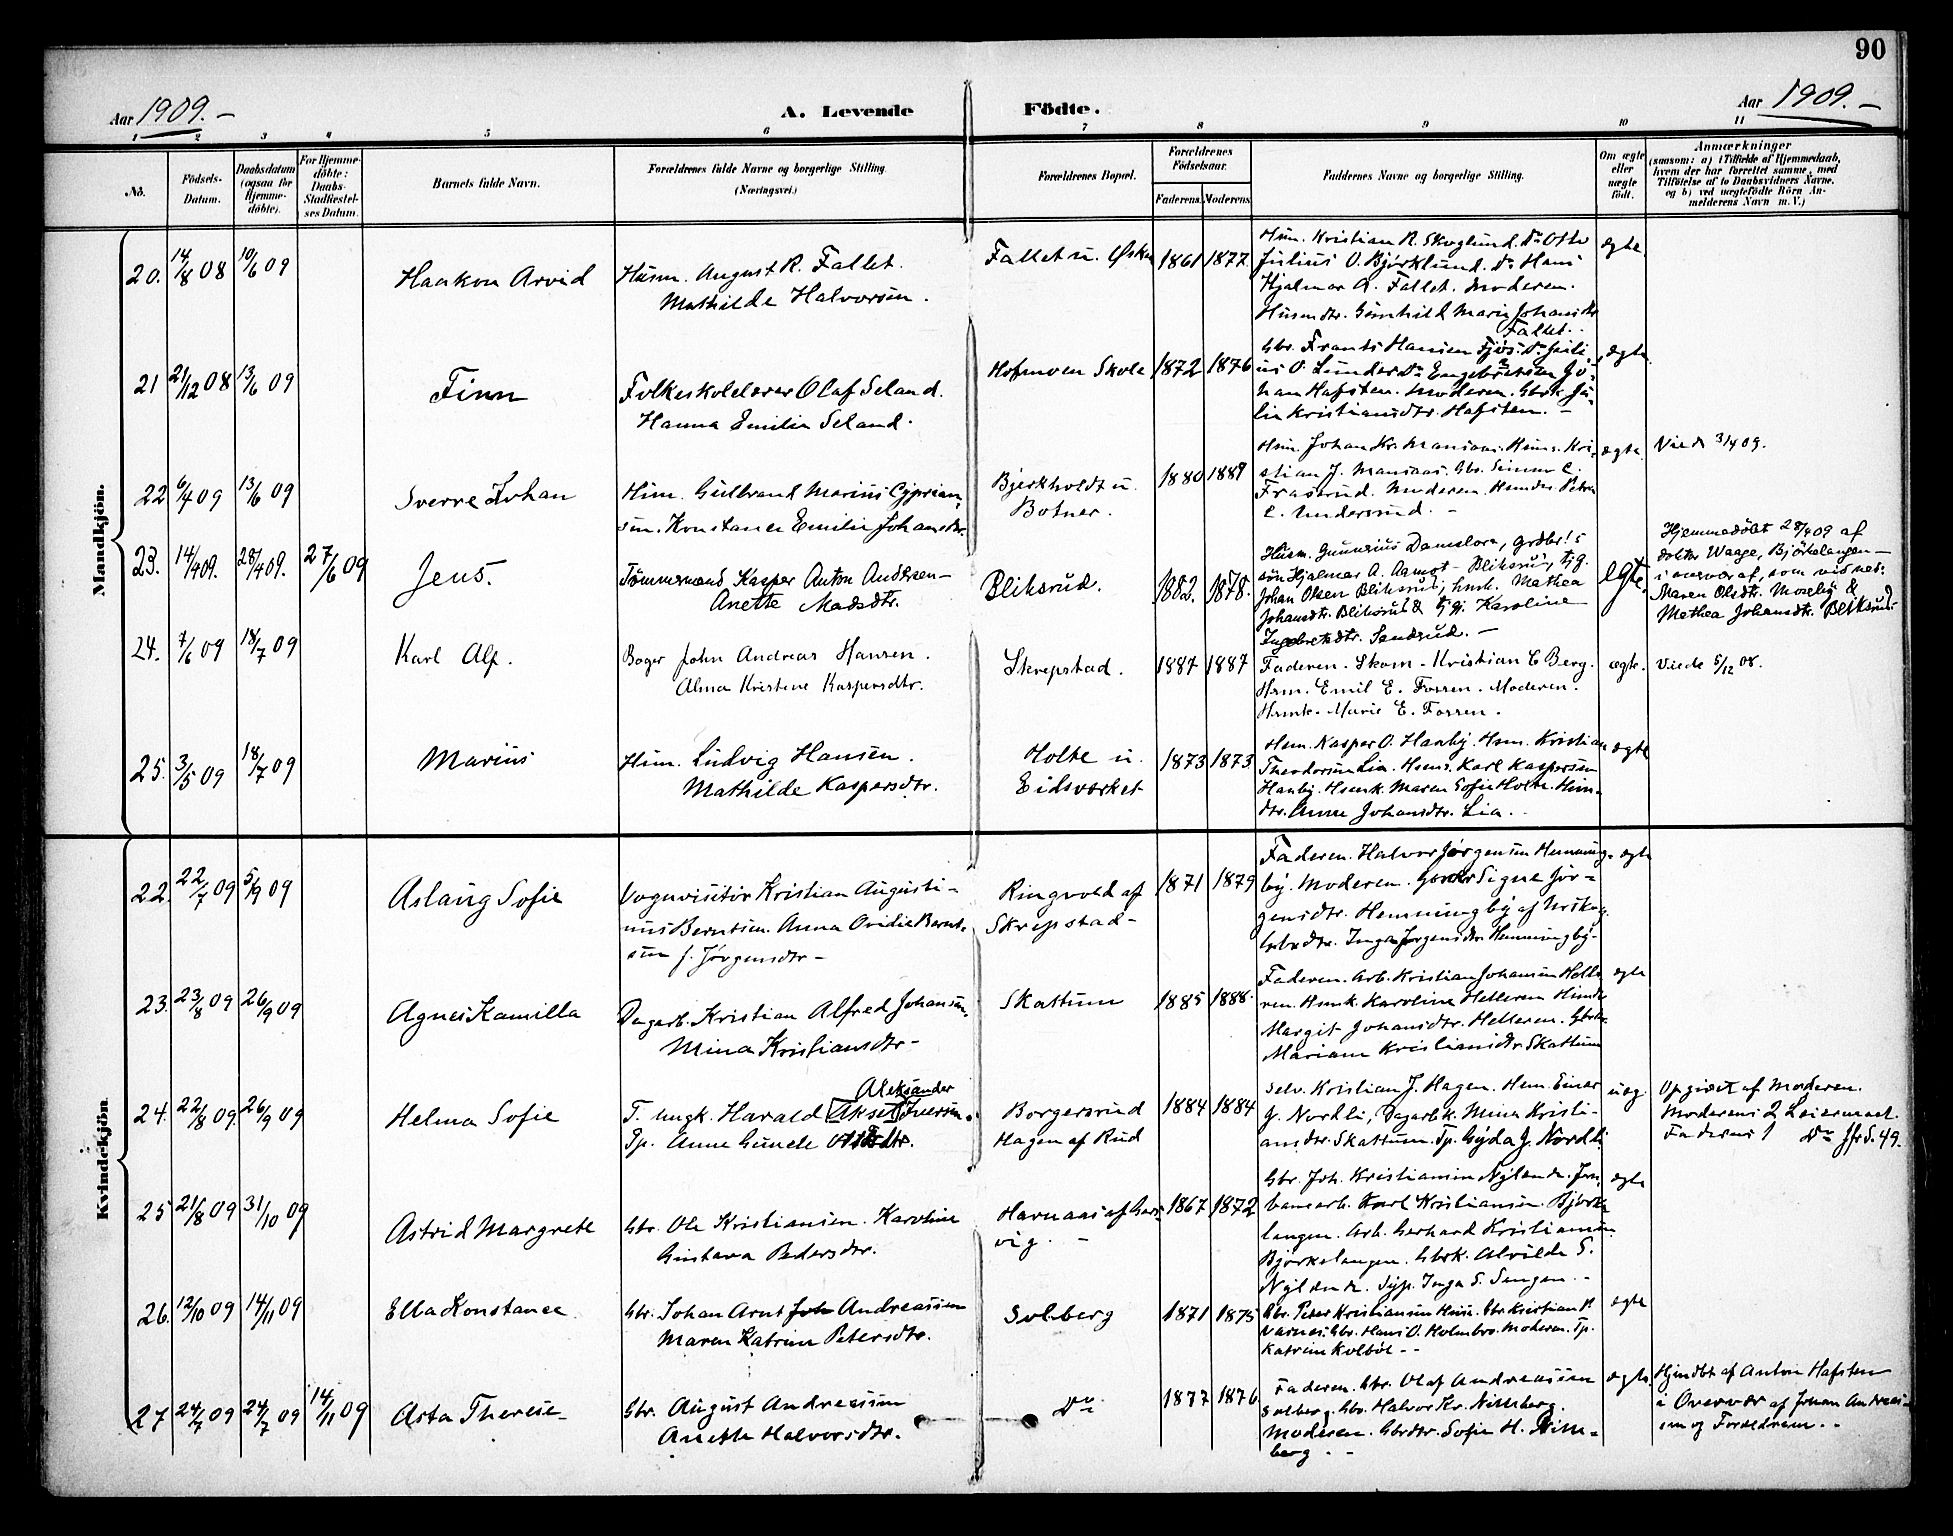 90
Aar 1909. –
A. Levende Födte.
Aar 1909. –
1 2 3 4 5 6 7 8 9 10 11
No.
Födsels-Datum.
Daabsdatum (ogsaa for Hjemme-döbte).
For Hjemme-döbte: Daabs-Stadfæstel-ses Datum.
Barnets fulde Navn.
Forældrenes fulde Navne og borgerlige Stilling (Næringsvei.)
Forældrenes Bopæl.
Forældrenes Födselsaar.
Faderens. Moderens.
Faddernes Navne og borgerlige Stilling.
Om ægte eller uægte födt.
Anmærkninger
(saasom: a) i Tilfælde af Hjemmedaab,
hvem der har forrettet samme, med
Tilföielse af to Daabsvidners Navne,
og b) ved uægtefödte Börn An-
melderens Navn m. V.)
Mandkjön.
20. 14/8 08 10/6 09 Haakon Arvid
Husm. August R. Fallet.
Mathilde Halvorsen.
Fallet u. 1861 1877
Hsm. Kristian R. Skoglund. Do Otto
Julius O. Björklund. Do Hans
Hjalmar A. Fallet. Moderen.
Husmdtr. Gunhild Marie Johansdtr
Fallet.
ægte
21 21/12 08 13/6 09 Finn
Folkeskolelærer Olaf Seland.
Hanna Emilie Seland.
Hofmoen Skole 1872 1876
Gbr. Frants Hansen Fjøs. Do Juli-
us O. Lunder Do Engebretsen Jo-
han Hafsten. Moderen. Gbrk. Ju-
lie Kristiansdtr. Hafsten. –
ægte
22 6/4 09 13/6 09 Sverre Johan
Hsm. Gulbrand Marius Cyprian-
sen. Konstance Emilie Johansdtr.
Bjerkholdt u.
Botner.
1880 1889
Hsm. Johan Kr. Mansaas. Hsms. Kri-
stian J. Mansaas. Gbr. Simen C.
Fraserud. Moderen. Hsmdtr. Petra
C. Undersrud. –
ægte. Viede 3/4 09.
23. 14/4 09. 28/4 09. 27/6 09 Jens.
Tömmermand Kasper Anton Andersen –
Anette Madsdtr.
Bliksrud. 1882. 1878.
Husm. Gunerius Damslora, grdbr's
søn Hjalmar A. Aamot – Bliksrud, tjg.
Johan Olsen Bliksrud, hmk. Mathea
Johansdtr. Bliksrud & tjg. Karoline
Ingebretsdtr. Sandsrud. –
ægte.
Hjemmedøbt 28/4 09 af
doktor Waage, Björkelangen –
i overvær af, som vidnes:
Maren Olsdtr. Moseby &
Mathea Johansdtr. Bliksrud.
24. 7/6 09 18/7 09 Karl Alf.
Bager John Andreas Hansen.
Alma Kristine Kaspersdtr.
Skrepstad. 1887 1887
Faderen. Skom. Kristian E Berg.
Hsm. Emil E. Fossen. Moderen.
Hsmk. Marie E. Fossen.
ægte. Viede 5/12 08.
25. 3/5 09 18/7 09 Marius
Hsm. Ludvig Hansen.
Mathilde Kaspersdtr.
Holte u.
Eidsverket
1873 1873
Hsm. Kasper O. Haneby. Hsm. Kristian
Theodorsen Lia. Hsms. Karl Kaspersen
Haneby. Hsmk. Maren Sofie Holte. Hsm-
dtr. Anne Johansdtr. Lia.
ægte
Kvindekjön.
22. 22/7 09 5/9 09 Aslaug Sofie
Vognvisitör Kristian Augusti-
nus Berntsen. Anna Ovidia Bernt-
sen f. Jørgensdtr –
Ringvold af
Skrepstad –
1871 1879
Faderen. Halvor Jørgensen Henning-
by. Moderen. Signe Jør-
gensdtr. Henningby af Urskog.
Gbrdtr. Inga Jørgensdtr Henningby –
ægte
23. 23/8 09 26/9 09 Agnes Kamilla
Dagarb. Kristian Alfred Johansen.
Mina Kristiansdtr –
Skattum 1885 1888.
Faderen. Arb. Kristian Johansen Helle-
ren. Hsmk. Karoline Helleren Hsmdtr
Margit Johansdtr. Helleren. Gbrdtr.
Mariam Kristiansdtr Skattum
ægte
24. 22/8 09. 26/9 09 Helma Sofie
Aleksander
T. ungk. Harald [Aksel] Iversen.
Tp. Anne Gunda dtr.
Borgersrud
Hagen af Rud
1884 1884
Selv. Kristian J. Hagen. Hsm. Einar
G. Nordli, Dagarbk. Mina Kristi-
ansdtr. Skattum. Tp. Gyda J. Nordli
uæg.
Opgivet af Moderen.
Moderens 2 Leiermaal.
Faderens 1 Do Jfr S. 49.
25 21/8 09 31/10 09 Astrid Margrete
Gbr. Ole Kristiansen. Karoline
Gustava Pedersdtr.
Harnaas af Gers-
vig. –
1867 1872
Gbr. Joh. Kristiansen Nylænde. Jern-
banearb. Karl Kristiansen. Björke-
langen. Arb. Gerhard Kristiansen.
Björkelangen. Gbrk. Alvilde S.
Nylænde. Syp. Inga S. Sangen. –
ægte
26. 12/10 09 14/11 09 Ella Konstance
Gbr. Johan Arnt Joh Andreassen
Maren Katrine Petersdtr.
Solberg 1871 1875
Gbr. Peter Kristiansen Gbr Kristian P.
Varnes. Gbr. Hans O. Holmbro. Moderen. Tp.
Katrine Kolböl –
ægte
27 24/7 09 24/7 09 14/11 09 Asta Therese
Gbr. August Andreassen
Anette Halvorsdtr.
Do 1877 1876
Faderen. Gbr. Olaf Andreassen
Solberg. Gbr. Halvor Kr. Nilleberg.
Moderen. Gbrdtr. Sofie H. Nille-
berg. –
ægte
Hjmdbt af Anton Hafsten
i Overvær af Johan Andreas-
sen og Forældrene. –